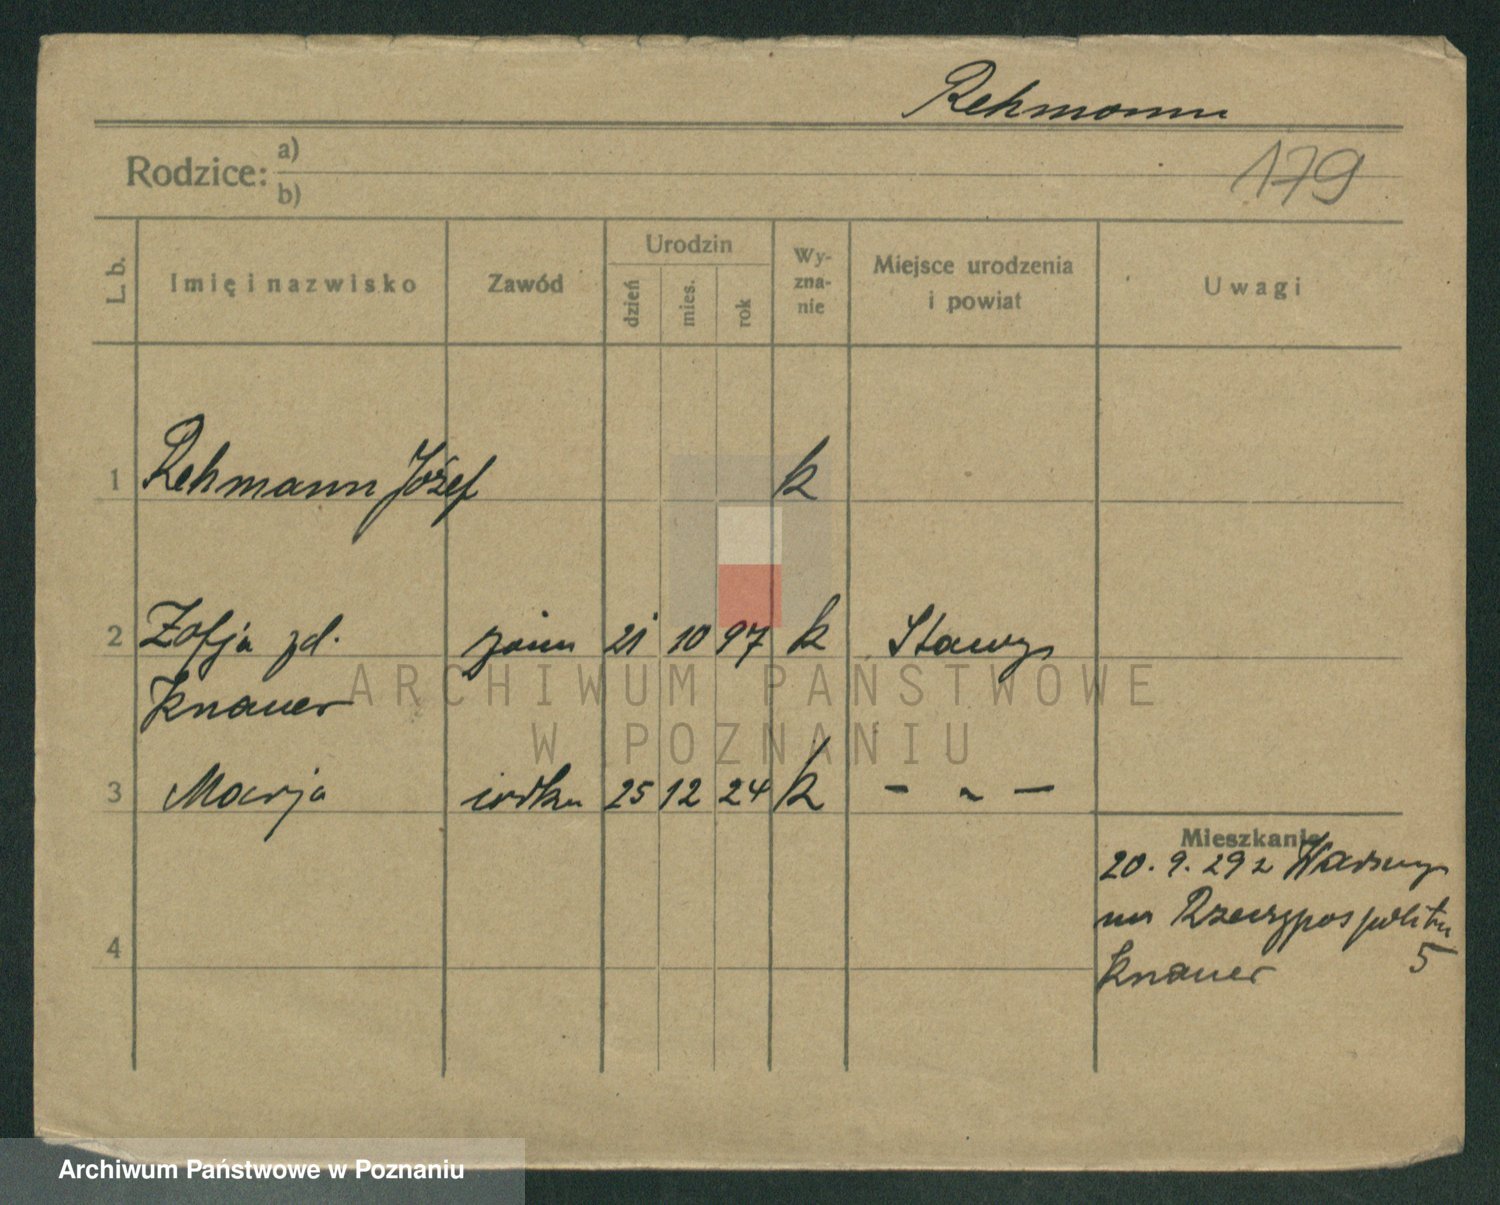 Rehmann
179
Rodzice: a)
b)
L. b.
Imię i nazwisko
Zawód
Urodzin
dzień
mies.
rok
Wy-
zna-
nie
Miejsce urodzenia
i powiat
Uwagi
1 Rehmann Józef k
2 Zofja zd. 21 10 97 k Stawy
Knauer
3 Marja 25 12 24 k - " -
Mieszkanie
20. 9. 29 z Warszawy
na Rzeczypospolita
5
Knauer
4
ARCHIWUM PAŃSTWOWE
W POZNANIU
Archiwum Państwowe w Poznaniu